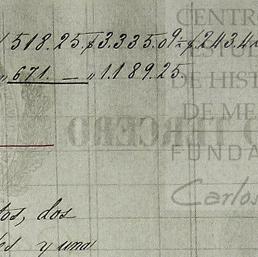 518.25,$3.335.09=$243.4
"671.— "1.189.25.
CENTRO
DE HIST
DE ME
FUNDA
Carlos
tos, dos
y una